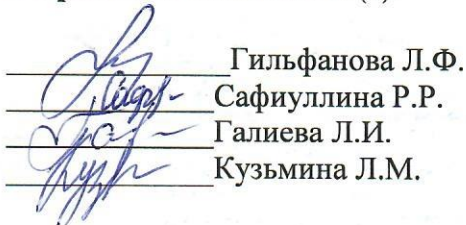 Гильфанова Л.Ф.
Сафиуллина Р.Р.
Галиева Л.И.
Кузьмина Л.М.